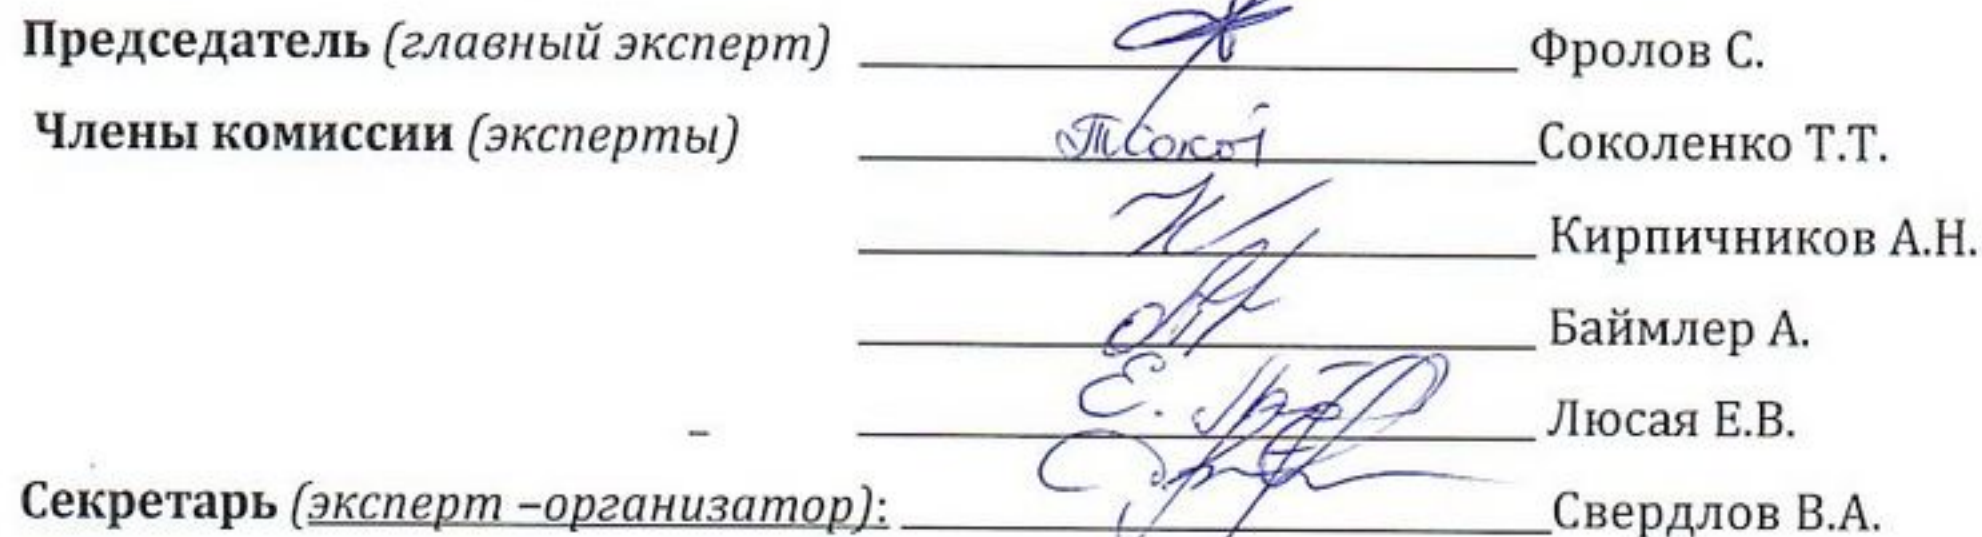 Председатель (главный эксперт) Фролов С.
Члены комиссии (эксперты) Соколенко Т.Т.
Кирпичников А.Н.
Баймлер А.
Люсая Е.В.
Секретарь (эксперт –организатор): Свердлов В.А.